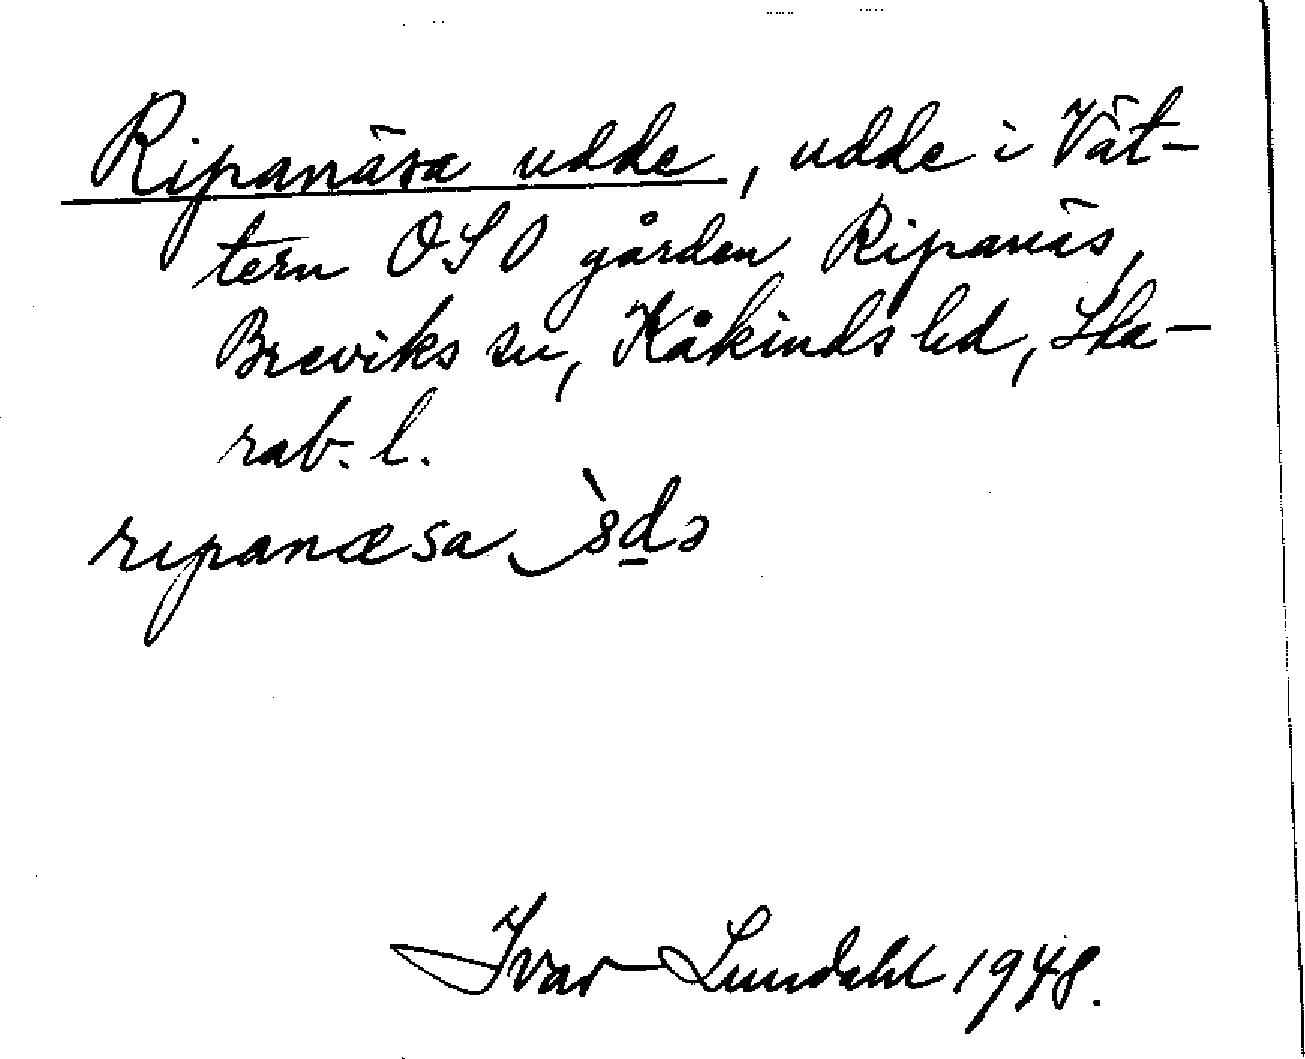 Ripanäsa udde, udde i Vät-
tern OSO gården Ripanäs,
Breviks sn, Kåkinds hd, Ska-
rab. l.
ripanæsa ˎ 8̀d̲ə
Ivar Lundahl 1948.